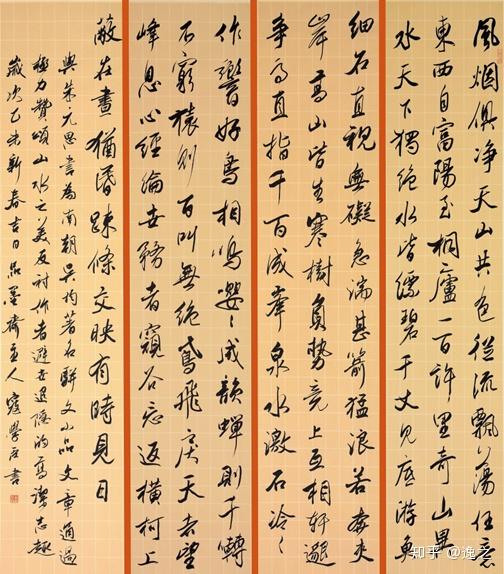 風烟俱净天山共色從流飄蕩任意
東西自富陽至桐廬一百許里奇山異
水天下獨絶水皆縹碧千丈見底游魚
細石直視無礙急湍甚箭猛浪若奔夾
岸高山皆生寒樹負勢競上互相軒邈
争高直指千百成峯泉水激石泠々
作響好鳥相鳴嚶々成韻蟬則千轉
不窮猿則百叫無絶鳶飛戾天者望
峰息心經綸世務者窺谷忘返横柯上
蔽在晝猶昏疎條交映有時見日
與朱元思書為南朝吴均著名駢文小品文章通過
極力贊頌山水之美反衬作者避世退隱的高潔志趣
歲次乙未新春吉日品墨齋主人寇學書
知乎 @逸之